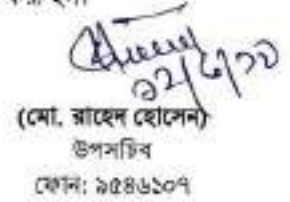 ১২/৬/২০
(মো. রাহেদ হোসেন)
উপসচিব
ফোন: ৯৫৪৬১০৭